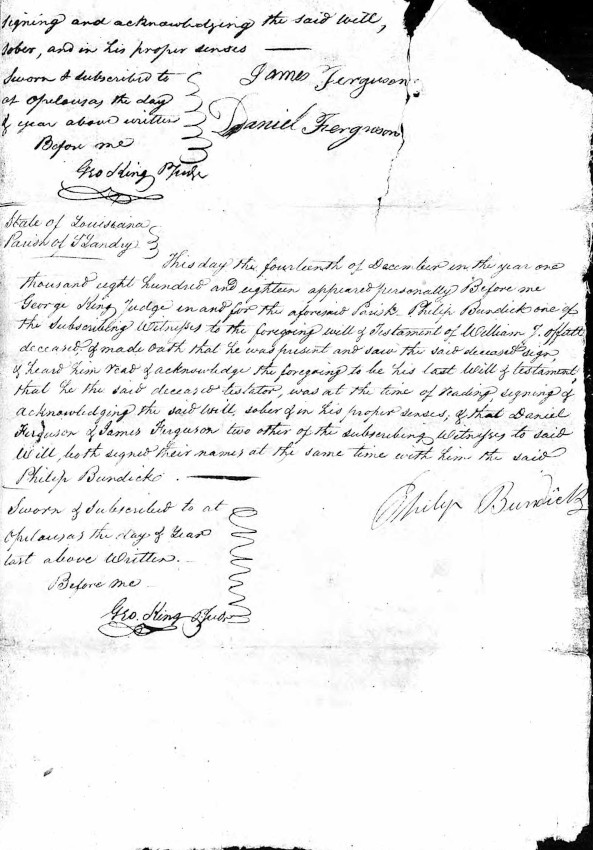 signing and acknowledging the said will,
sober, and in his proper senses
Sworn & subscribed to
at Opelousas the day
& year above written
Before me
James Ferguson
Daniel Ferguson
Geo King PJudge
State of Louisiana
Parish of St Landry
This day the fourteenth of December in the year one
thousand eight hundred and eighteen appeared personally Before me
George King Judge in and for the aforesaid Parish Philip Bundick one of
the Subscribing Witnesses to the foregoing will & Testament of William J. Offutt
deceased, & made oath that he was present and saw the said deceased sign
& heard him read & acknowledge the foregoing to be his last Will & testament,
that he the said deceased testator, was at the time of reading signing &
acknowledging the said Will, sober & in his proper senses, & that Daniel
Ferguson & James Ferguson two other of the subscribing Witnesses to said
Will, both signed their names at the same time with him the said
Philip Bundick.
Sworn & subscribed to at
Opelousas the day & Year
last above Written.
Before me
Philip Bundick
Geo. King PJudge